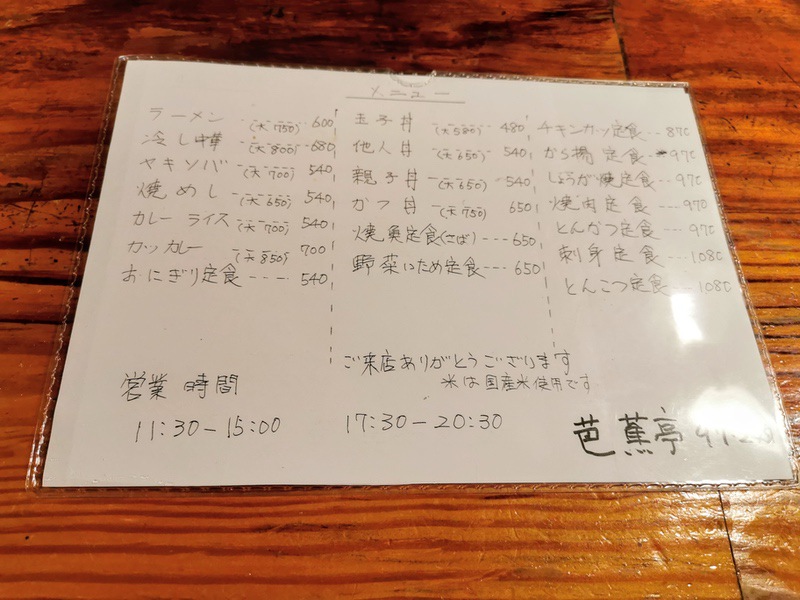 メニュー
ラーメン (大750) 600
冷し中華 (大800) 680
ヤキソバ (大700) 540
焼めし (大650) 540
カレーライス (大700) 540
カツカレー (大850) 700
おにぎり定食 ---- 540
玉子丼 (大580) 480
他人丼 (大650) 540
親子丼 (大650) 540
かつ丼 (大750) 650
焼魚定食(さば) --- 650
野菜いため定食 --- 650
チキンカツ定食 --- 870
から揚定食 -- 970
しょうが焼定食 --- 970
焼肉定食 --- 970
とんかつ定食 --- 970
刺身定食 --- 1080
とんこつ定食 --- 1080
ご来店ありがとうございます
米は国産米使用です
営業時間
11:30-15:00 17:30-20:30
芭蕉亭